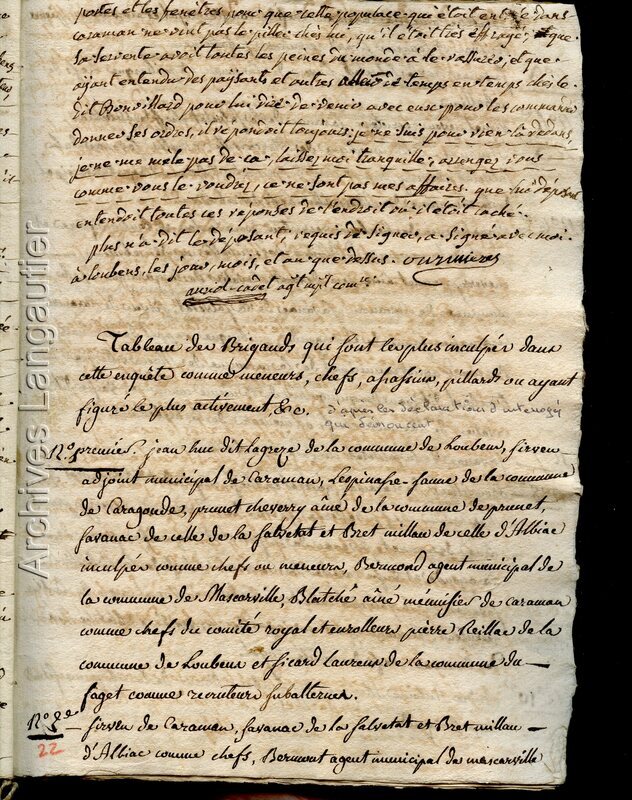 portes et les fenêtres pour que cette populace qui étoit entrée dans
caraman ne vint pas le piller chès lui, qu'il étoit très effrayé, que
sa servente avoit toutes les peines du monde à le rassurer, et que
ayant entendu des paysants et autres aller de temps en temps chès le
dit Bonvillard pour lui dire de venir avec eux pour les commander
donner ses ordres, il répondoit toujours: je ne suis pour rien là dedans,
je ne me mele pas de ca, laissez moi tranquille, arrengez vous
comme vous le voudrez, ce ne sont pas mes affaires. que lui déposant
entendoit toutes ces réponses de l'endroit où il étoit caché.
plus n'a dit le déposant, requis de signer, a signé avec moi
à loubens, les jour, mois, et an que dessus.
Tableau des Brigands qui sont les plus inculpés dans
cette enquête comme meneurs, chefs, assassins, pillards ou ayant
figuré le plus activement &c. d'après les déclarations d'interrogés
qui dénoncent
No. premier. jean huc dit lagreze de la commune de Loubens, sirven
adjoint municipal de Caraman, Lespinasse-saune de la commune
de Caragoude, prunet cheverry aîné de la commune de prunet,
savanac de celle de la salvetat et Bret millau de celle d'Albiac
inculpés comme chefs ou meneurs, Bermond agent municipal de
la commune de Mascarville, Blatché aîné ménuisier de caraman
comme chefs du comité royal et enrolleurs pierre Reillac de la
commune de Loubens et sicard laurens de la commune du
faget comme recruteurs subalternes.
No. 2e sirven de Caraman, savanac de la salvetat et Bret millau
22 d'Albiac comme chefs, Bermont agent municipal de mascarville
Archives Langautier